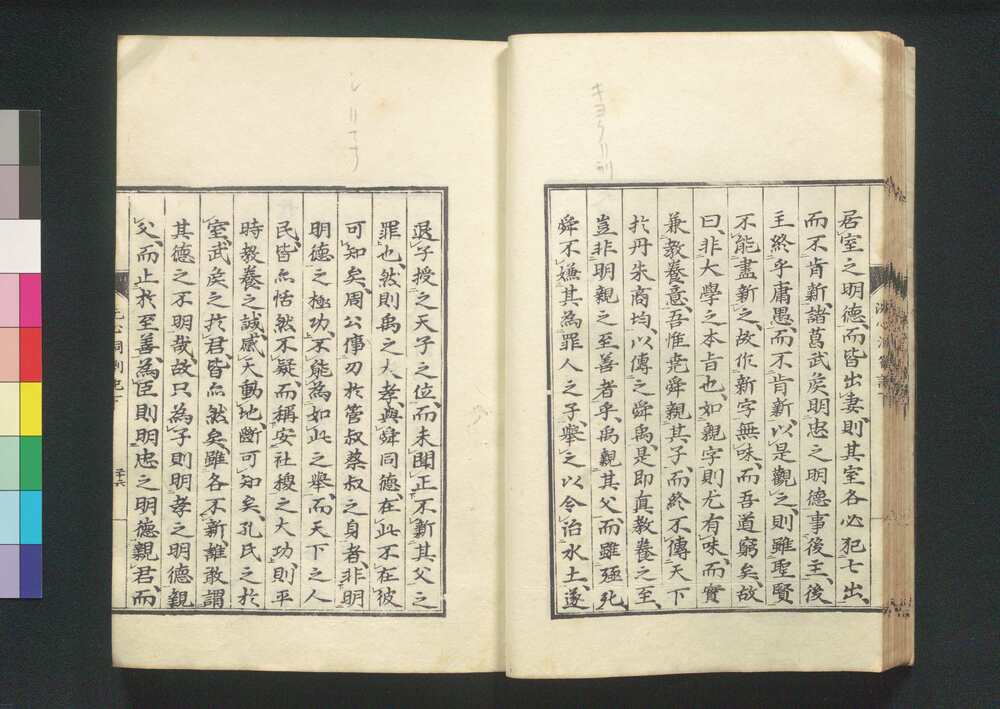 居室之明德、而皆出妻、則其室各必犯七出、
而不肯新、諸葛武矦明忠之明德事後主、後
主終乎庸愚、而不肯新、以是觀之、則雖聖賢
不能盡新之、故作新字無味、而吾道窮矣、故
曰、非大學之本旨也、如親字則尤有味、而實
兼教養意、吾惟尭舜親其子、而終不傳天下
於丹朱商均、以傳之舜禹、是即真教養之至、
豈非明親之至善者乎、禹親其父、而雖殛死
舜不嫌其為罪人之子、舉之以令治水土、遂
退子授之天子之位、而未聞正不新其父之
罪也、然則禹之大孝與舜同德、在此不在彼
可知矣、周公傳刃於管叔蔡叔之身者、非明
明德之極功、不能為如此之舉、而天下之人
民、皆亦恬然不疑、而稱安社稷之大功、則平
時教養之誠感天動地、斷可知矣、孔氏之於
室、武矦之於君、皆亦然矣、雖各不新、誰敢謂
其德之不明哉、故只為子則明孝之明德親
父、而止於至善、為臣則明忠之明德親君、而